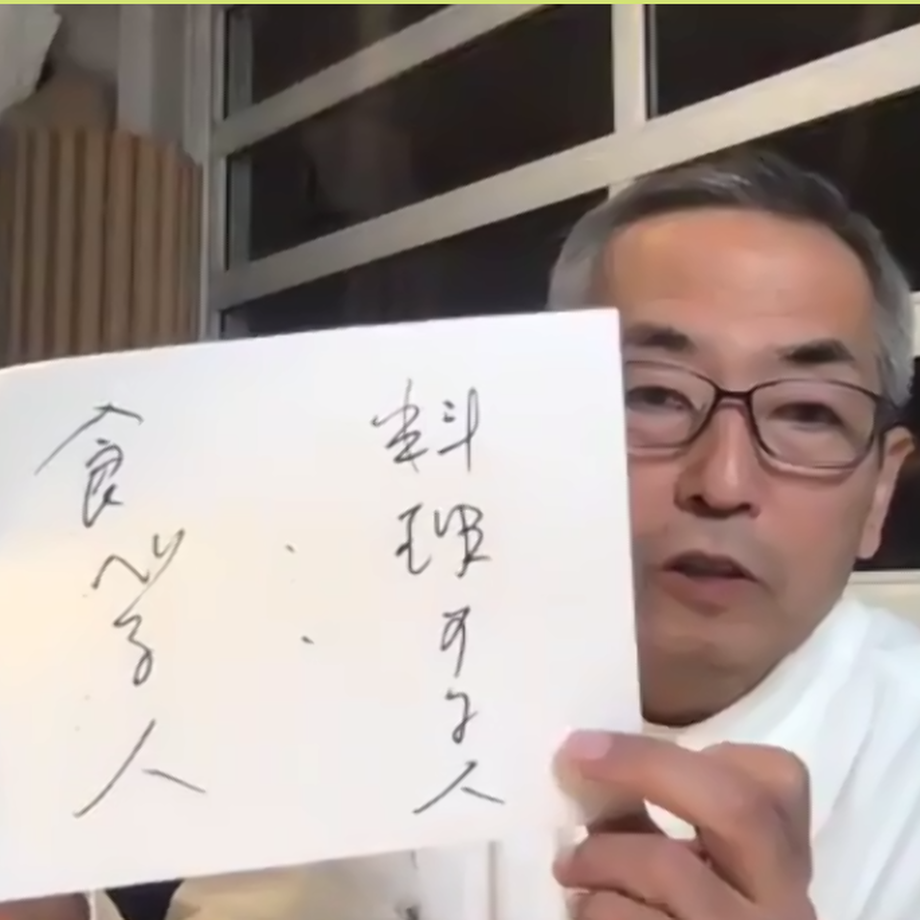 料理する人
：
食べる人